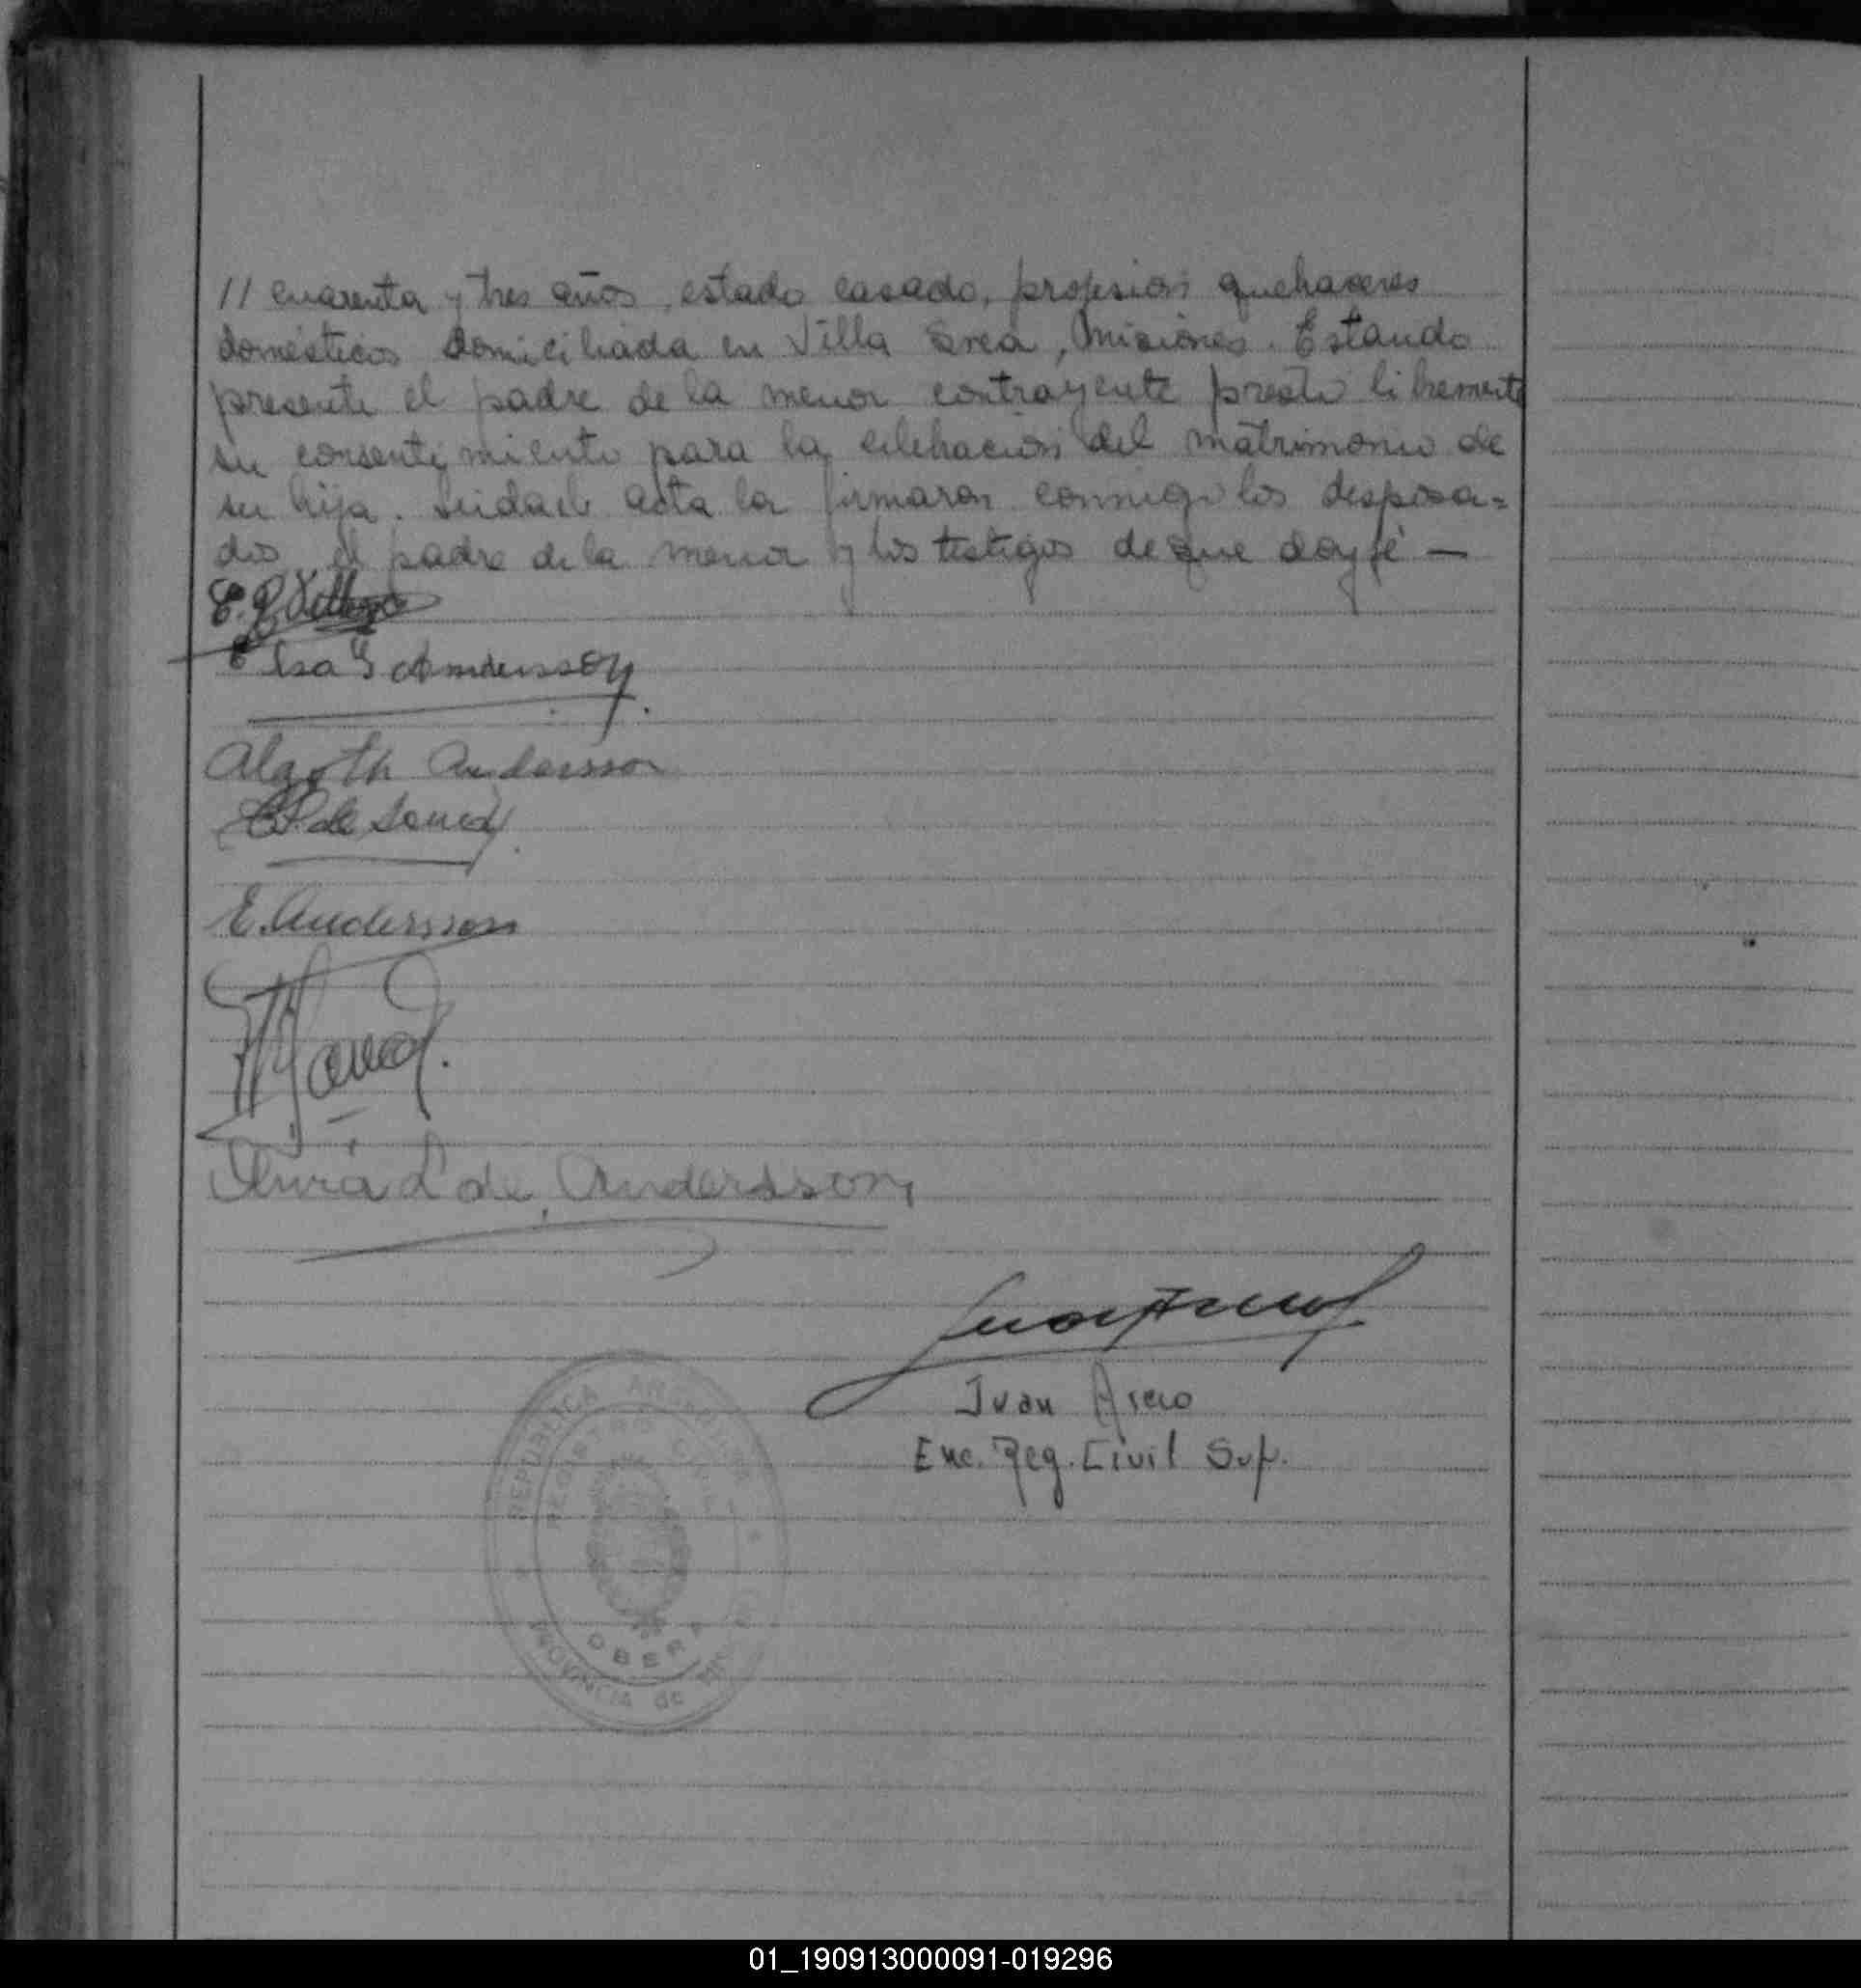 // cuarenta y tres años, estado casado, profesión quehaceres
domésticos domiciliada en Villa Svea, Misiones. Estando
presente el padre de la menor contrayente prestó libremente
su consentimiento para la celebración del matrimonio de
su hija. Leída el acta la firmaron conmigo los desposa=
dos, el padre de la menor y los testigos de que doy fé —
Elsa Andersson
Algoth Andersson
E. Andersson
L de Andersson
Juan Arelo
Enc. Reg. Civil Sup.
REPUBLICA ARGENTINA
REGISTRO CIVIL
OBERA
PROVINCIA de
01_190913000091-019296